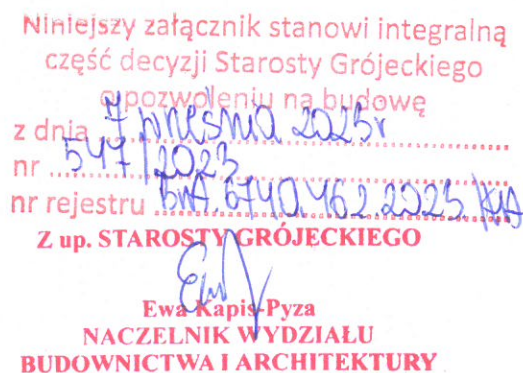 Niniejszy załącznik stanowi integralną
część decyzji Starosty Grójeckiego
o pozwoleniu na budowę
z dnia 7 września 2023r
nr 547/2023
nr rejestru BWA.6740.462.2023.
Z up. STAROSTY GRÓJECKIEGO
Ewa Kapis-Pyza
NACZELNIK WYDZIAŁU
BUDOWNICTWA I ARCHITEKTURY